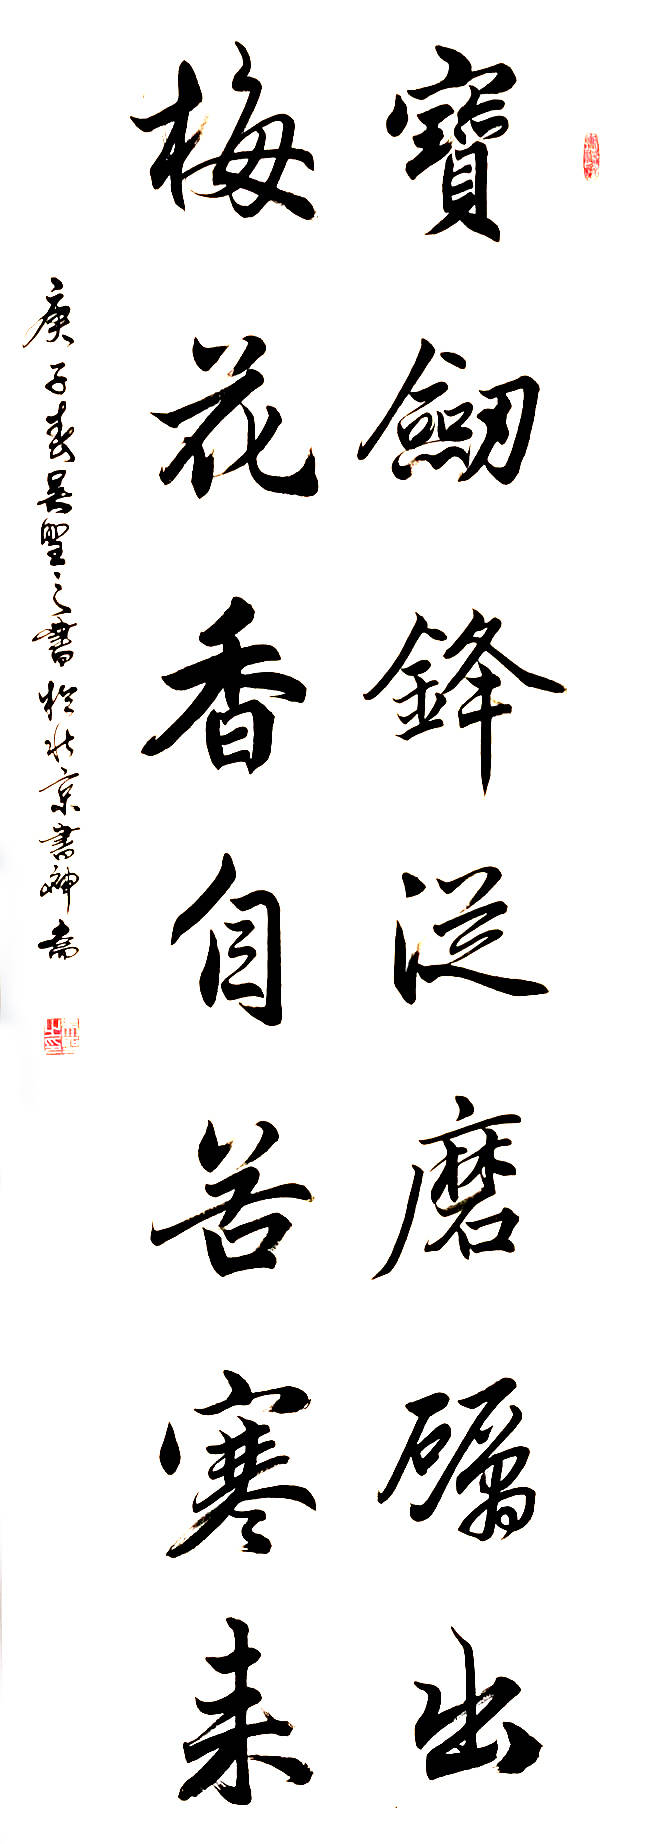 寶劒鋒从磨礪出
梅花香自苦寒来
庚子春吴聖之書於北京書神斋